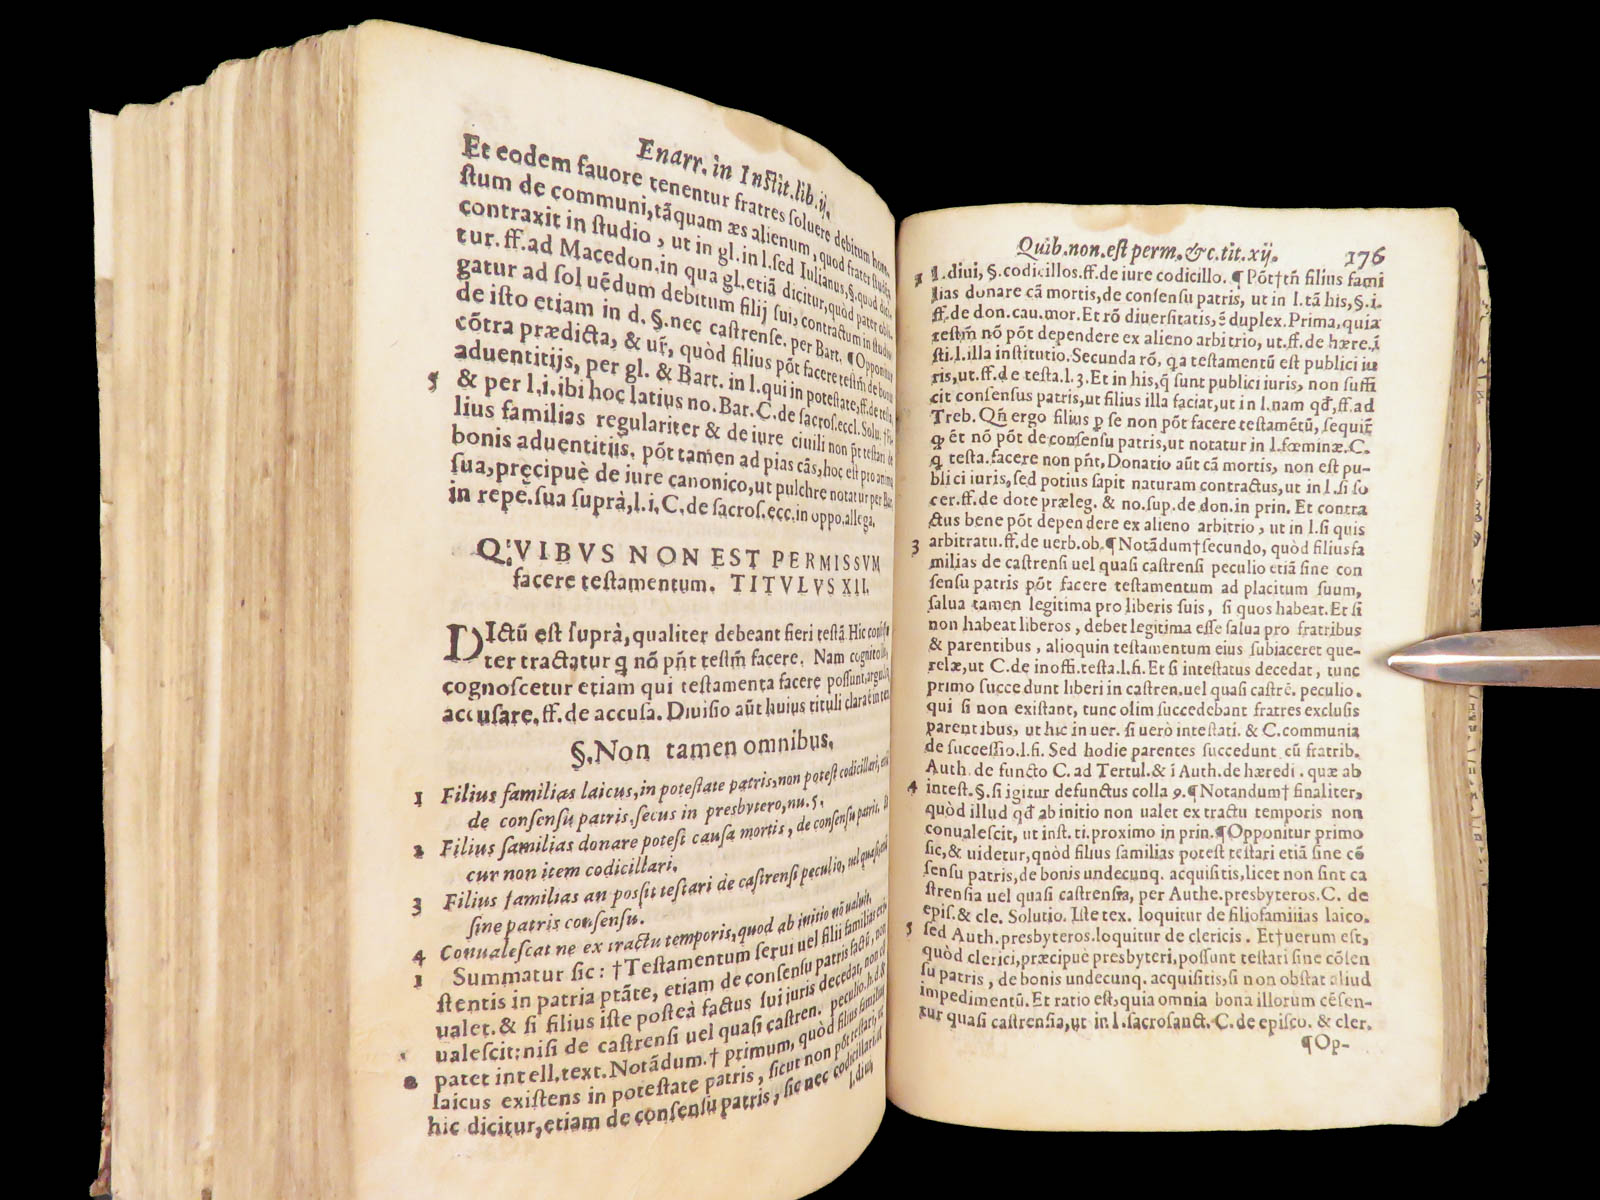 Enarr. in Instit. lib. ij.
Et eodem fauore tenentur fratres soluere debitum hone-
stum de communi, tãquam æs alienum, quod frater studẽs
contraxit in studio, ut in gl. in l. sed Iulianus, §. quod dici-
tur. ff. ad Macedon. in qua gl. etiã dicitur, quòd pater obli-
gatur ad soluẽdum debitum filij sui, contractum in studio
de isto etiam in d. §. nec castrense. per Bart. ¶ Opponitur
cõtra prædicta, & ur̃, quòd filius põt facere testm̃ de bonis
aduentitijs, per gl. & Bart. in l. qui in potestate, ff. de testa.
5 & per l. i. ibi hoc latius no. Bar. C. de sacros. eccl. Solu. † Fi-
lius familias regulariter & de iure ciuili non pr̃t testari de
bonis aduentitijs. põt tamen ad pias cãs, hoc est pro anima
sua, pręcipuè de iure canonico, ut pulchre notatur per Bar.
in repe. sua suprà, l. i. C. de sacros. ecc. in oppo. allega.
QVIBVS NON EST PERMISSVM
facere testamentum. TITVLVS XII.
DIctũ est suprà, qualiter debeant fieri testã Hic
ter tractatur q nõ pñt testm̃ facere. Nam cognito
cognoscetur etiam qui testamenta facere possunt,
accusare, ff. de accusa. Diuisio aũt huius tituli clara
§. Non tamen omnibus.
1 Filius familias laicus, in potestate patris, non potest codicillari,
de consensu patris. secus in presbytero, nu. 5.
2 Filius familias donare potest causa mortis, de consensu patris.
cur non item codicillari.
3 Filius familias an possit testari de castrensi peculio, uel quasi,
sine patris consensu.
4 Conualescat ne ex tractu temporis, quod ab initio nõ ualuit.
1 Summatur sic: † Testamentum serui uel filii familias exi-
stentis in patria ptãte, etiam de consensu patris factũ, non
ualet. & si filius iste posteà factus sui iuris decedat, non
ualescit: nisi de castrensi uel quasi castren. peculio. h. d. &
2 patet intell. text. Notãdum. † primum, quòd filius familias
laicus existens in potestate patris, sicut non põt testari,
hic dicitur, etiam de consensu patris, sic nec codicillari.
l. diui,
Quib. non. est perm. &c. tit. xij. 176
l. diui, §. codicillos. ff. de iure codicillo. ¶ Põt † tñ filius fami
lias donare cã mortis, de consensu patris, ut in l. tã his, §. i.
ff. de don. cau. mor. Et rõ diuersitatis, ẽ duplex. Prima, quia
testm̃ nõ põt dependere ex alieno arbitrio, ut. ff. de hære. ĩ
sti. l. illa institutio. Secunda rõ, qa testamentũ est publici iu
ris, ut. ff. de testa. l. 3. Et in his, q̃ sunt publici iuris, non suffi
cit consensus patris, ut filius illa faciat, ut in l. nam qđ, ff. ad
Treb. Qñ ergo filius p se non põt facere testamẽtũ, sequit̃
q et nõ põt de consensu patris, ut notatur in l. fœminæ. C.
q testa. facere non pñt, Donatio aũt cã mortis, non est pu-
blici iuris, sed potius sapit naturam contractus, ut in l. si so
cer. ff. de dote præleg. & no. sup. de don. in prin. Et contra
ctus bene põt dependere ex alieno arbitrio, ut in l. si quis
3 arbitratu. ff. de uerb. ob. ¶ Notãdum † secundo, quòd filiusfa
milias de castrensi uel quasi castrensi peculio etiã sine con
sensu patris põt facere testamentum ad placitum suum,
salua tamen legitima pro liberis suis, si quos habeat. Et si
non habeat liberos, debet legitima esse salua pro fratribus
& parentibus, alioquin testamentum eius subiaceret que-
relæ, ut C. de inoffi. testa. l. fi. Et si intestatus decedat, tunc
primo succedunt liberi in castren. uel quasi castrẽ. peculio.
qui si non existant, tunc olim succedebant fratres exclusis
parentibus, ut hic in uer. si uerò intestati. & C. communia
de successio. l. fi. Sed hodie parentes succedunt cũ fratrib.
Auth. de functo C. ad Tertul. & ĩ Auth. de hæredi. quæ ab
4 intest. §. si igitur defunctus colla 9. ¶ Notandum † finaliter,
quòd illud qđ ab initio non ualet ex tractu temporis non
conualescit, ut inst. ti. proximo in prin. ¶ Opponitur primo
sic, & uidetur, quòd filius familias potest testari etiã sine cõ
sensu patris, de bonis undecunq. acquisitis, licet non sint ca
strensia uel quasi castrensia, per Authe. presbyteros. C. de
epis. & cle. Solutio. Iste tex. loquitur de filiofamilias laico.
5 sed Auth. presbyteros. loquitur de clericis. Et † uerum est,
quòd clerici, præcipuè presbyteri, possunt testari sine cõsen
su patris, de bonis undecunq. acquisitis, si non obstat aliud
impedimentũ. Et ratio est, quia omnia bona illorum cẽsen-
tur quasi castrensia, ut in l. sacrosanct. C. de episco. & cler.
¶ Op-